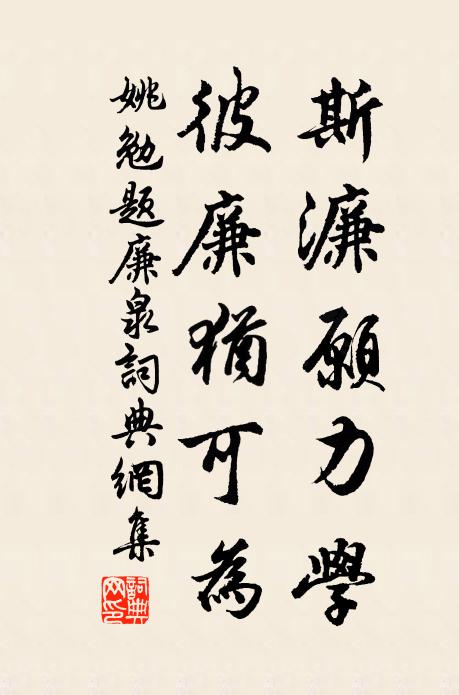 斯濂願力學
彼廉猶可為
姚勉題廉泉詞典網集
詞典